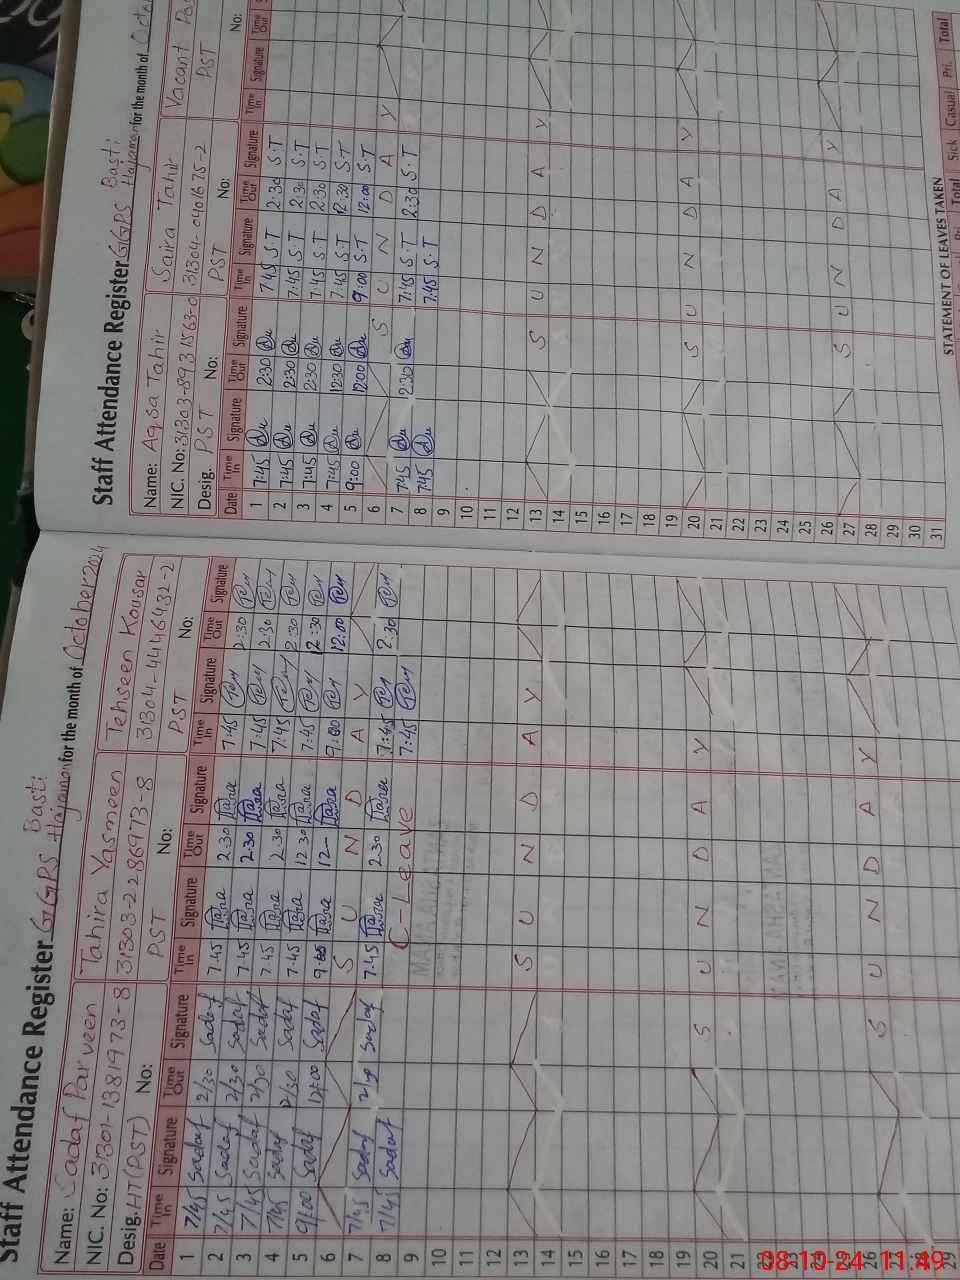 Staff Attendance Register GGPS Basti Hajaman for the month of October 2024
Name: Sadaf Parveen Tahira Yasmeen Tehseen Kousar
NIC. No: 31301-1381973-8 31303-2286973-8 31304-4446432-2
Desig. HT(PST) No: PST No: PST No:
Date Time In Signature Time Out Signature Time In Signature Time Out Signature Time In Signature Time Out Signature
1 7/45 Sadaf 2/30 Sadaf 7.45 2.30 7:45 2:30
2 7/45 Sadaf 2/30 Sadaf 7.45 2.30 7:45 2:30
3 7/45 Sadaf 2/30 Sadaf 7.45 2.30 7:45 2:30
4 7/45 Sadaf 2/30 Sadaf 7.45 12.30 7:45 12:30
5 9/00 Sadaf 12/00 Sadaf 12 9:00 12:00
6 S U N D A Y
7 7/45 Sadaf Sadaf 7.45 2.30 7:45 2.30
8 7/45 Sadaf C-Leave 7:45
9
10
11
12
13 S U N D A Y
14
15
16
17
18
19
20 S U N D A Y
21
22
23
24
25
26 S U N D A Y
27
28
29
Staff Attendance Register GGPS Basti Hajaman for the month of
Name: Aqsa Tahir Saira Tahir Vacant
NIC. No: 31303-8931563-0 31304-0401675-2
Desig. PST No: PST No: PST No:
Date Time In Signature Time Out Signature Time In Signature Time Out Signature Time In Signature Time Out
1 7:45 2:30 7:45 S.T 2:30 S.T
2 7:45 2:30 7:45 S.T 2:30 S.T
3 7:45 2:30 7:45 S.T 2:30 S.T
4 7:45 12:30 7:45 S.T 12:30 S.T
5 9:00 12:00 9:00 S.T 12:00 S.T
6 S U N D A Y
7 7:45 2:30 7:45 S.T 2:30 S.T
8 7:45 7:45 S.T
9
10
11
12
13 S U N D A Y
14
15
16
17
18
19
20 S U N D A Y
21
22
23
24
25
26
27 S U N D A Y
28
29
30
31
STATEMENT OF LEAVES TAKEN
Total Sick Casual Pri. Total
08-10-24 11:49